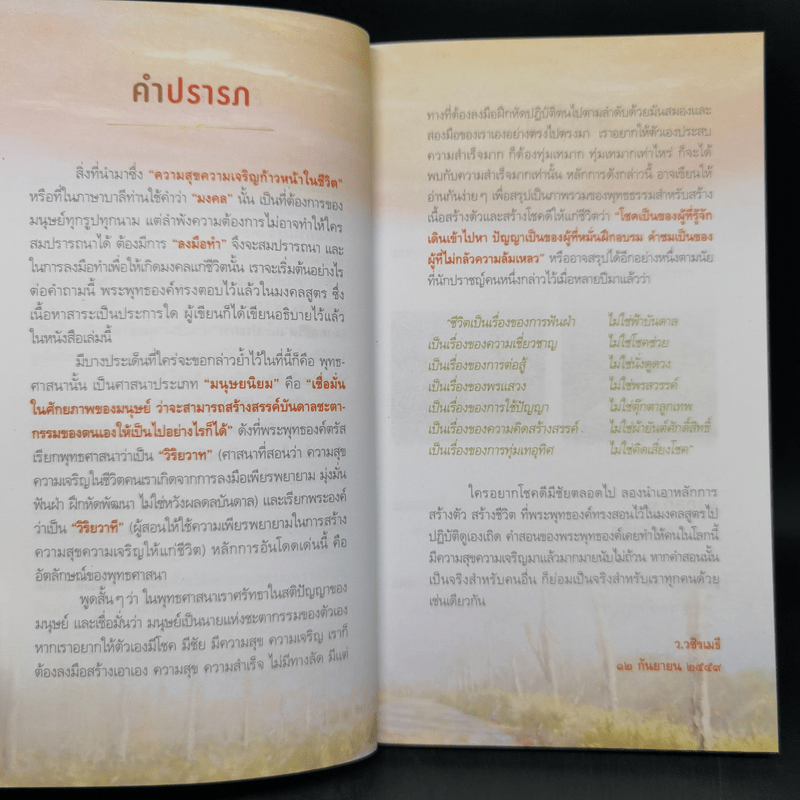 คำปรารภ
สิ่งที่นำมาซึ่ง “ความสุขความเจริญก้าวหน้าในชีวิต”
หรือที่ในภาษาบาลีท่านใช้คำว่า “มงคล” นั้น เป็นที่ต้องการของ
มนุษย์ทุกรูปทุกนาม แต่ลำพังความต้องการไม่อาจทำให้ใคร
สมปรารถนาได้ ต้องมีการ “ลงมือทำ” จึงจะสมปรารถนา และ
ในการลงมือทำเพื่อให้เกิดมงคลแก่ชีวิตนั้น เราจะเริ่มต้นอย่างไร
ต่อคำถามนี้ พระพุทธองค์ทรงตอบไว้แล้วในมงคลสูตร ซึ่ง
เนื้อหาสาระเป็นประการใด ผู้เขียนก็ได้เขียนอธิบายไว้แล้ว
ในหนังสือเล่มนี้
มีบางประเด็นที่ใคร่จะขอกล่าวย้ำไว้ในที่นี้ก็คือ พุทธ-
ศาสนานั้น เป็นศาสนาประเภท “มนุษยนิยม” คือ “เชื่อมั่น
ในศักยภาพของมนุษย์ ว่าจะสามารถสร้างสรรค์บันดาลชะตา-
กรรมของตนเองให้เป็นไปอย่างไรก็ได้” ดังที่พระพุทธองค์ตรัส
เรียกพุทธศาสนาว่าเป็น “วิริยวาท” (ศาสนาที่สอนว่า ความสุข
ความเจริญในชีวิตคนเราเกิดจากการลงมือเพียรพยายาม มุ่งมั่น
ฟันฝ่า ฝึกหัดพัฒนา ไม่ใช่หวังผลดลบันดาล) และเรียกพระองค์
ว่าเป็น “วิริยวาที” (ผู้สอนให้ใช้ความเพียรพยายามในการสร้าง
ความสุขความเจริญให้แก่ชีวิต) หลักการอันโดดเด่นนี้ คือ
อัตลักษณ์ของพุทธศาสนา
พูดสั้นๆ ว่า ในพุทธศาสนาเราศรัทธาในสติปัญญาของ
มนุษย์ และเชื่อมั่นว่า มนุษย์เป็นนายแห่งชะตากรรมของตัวเอง
หากเราอยากให้ตัวเองมีโชค มีชัย มีความสุข ความเจริญ เราก็
ต้องลงมือสร้างเอาเอง ความสุข ความสำเร็จ ไม่มีทางลัด มีแต่
ทางที่ต้องลงมือฝึกหัดปฏิบัติตนไปตามลำดับด้วยมันสมองและ
สองมือของเราเองอย่างตรงไปตรงมา เราอยากให้ตัวเองประสบ
ความสำเร็จมาก ก็ต้องทุ่มเทมาก ทุ่มเทมากเท่าไหร่ ก็จะได้
พบกับความสำเร็จมากเท่านั้น หลักการดังกล่าวนี้ อาจเขียนให้
อ่านกันง่ายๆ เพื่อสรุปเป็นภาพรวมของพุทธธรรมสำหรับสร้าง
เนื้อสร้างตัวและสร้างโชคดีให้แก่ชีวิตว่า “โชคเป็นของผู้ที่รู้จัก
เดินเข้าไปหา ปัญญาเป็นของผู้ที่หมั่นฝึกอบรม คำชมเป็นของ
ผู้ที่ไม่กลัวความล้มเหลว” หรืออาจสรุปได้อีกอย่างหนึ่งตามนัย
ที่นักปราชญ์คนหนึ่งกล่าวไว้เมื่อหลายปีมาแล้วว่า
“ชีวิตเป็นเรื่องของการฟันฝ่า ไม่ใช่ฟ้าบันดาล
เป็นเรื่องของความเชี่ยวชาญ ไม่ใช่โชคช่วย
เป็นเรื่องของการต่อสู้ ไม่ใช่นั่งดูดวง
เป็นเรื่องของพรแสวง ไม่ใช่พรสวรรค์
เป็นเรื่องของการใช้ปัญญา ไม่ใช่ตุ๊กตาลูกเทพ
เป็นเรื่องของความคิดสร้างสรรค์ ไม่ใช่ผ้ายันต์ศักดิ์สิทธิ์
เป็นเรื่องของการทุ่มเทอุทิศ ไม่ใช่คิดเสี่ยงโชค”
ใครอยากโชคดีมีชัยตลอดไป ลองนำเอาหลักการ
สร้างตัว สร้างชีวิต ที่พระพุทธองค์ทรงสอนไว้ในมงคลสูตรไป
ปฏิบัติดูเองเถิด คำสอนของพระพุทธองค์เคยทำให้คนในโลกนี้
มีความสุขความเจริญมาแล้วมากมายนับไม่ถ้วน หากคำสอนนั้น
เป็นจริงสำหรับคนอื่น ก็ย่อมเป็นจริงสำหรับเราทุกคนด้วย
เช่นเดียวกัน
ว.วชิรเมธี
๑๒ กันยายน ๒๕๕๙